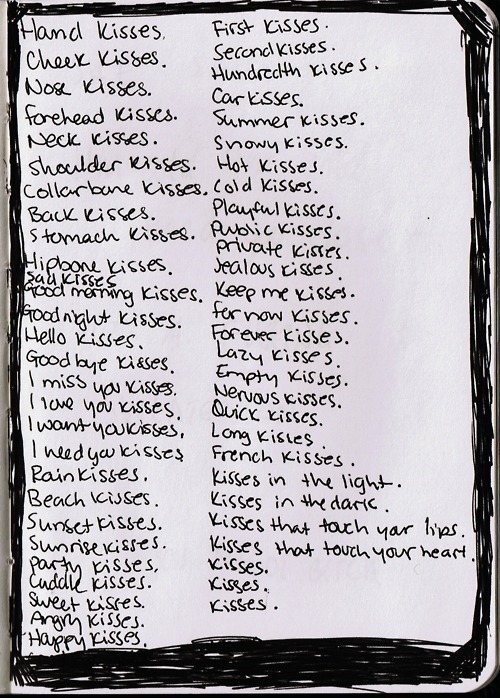 Hand Kisses.
Cheek Kisses.
Nose Kisses.
forehead Kisses.
Neck Kisses.
Shoulder Kisses.
Collarbone Kisses.
Back Kisses.
Stomach Kisses.
Hipbone Kisses.
Sad Kisses
Good morning Kisses.
Goodnight Kisses.
Hello Kisses.
Goodbye Kisses.
I miss you Kisses.
I love you Kisses.
I want you Kisses.
I need you Kisses
Rain Kisses.
Beach Kisses.
Sunset Kisses.
Sunrise Kisses.
Party Kisses.
Cuddle Kisses.
Sweet Kisses.
Angry Kisses.
Happy Kisses.
First Kisses.
Second Kisses.
Hundredth Kisses.
Car Kisses.
Summer Kisses.
Snowy Kisses.
Hot Kisses.
Cold Kisses.
Playful Kisses.
Public Kisses.
Private Kisses.
Jealous Kisses.
Keep me Kisses.
for now Kisses.
Forever Kisses.
Lazy Kisses.
Empty Kisses.
Nervous Kisses.
Quick Kisses.
Long Kisses.
French Kisses.
Kisses in the light.
Kisses in the dark.
Kisses that touch your lips.
Kisses that touch your heart.
Kisses.
Kisses.
Kisses.